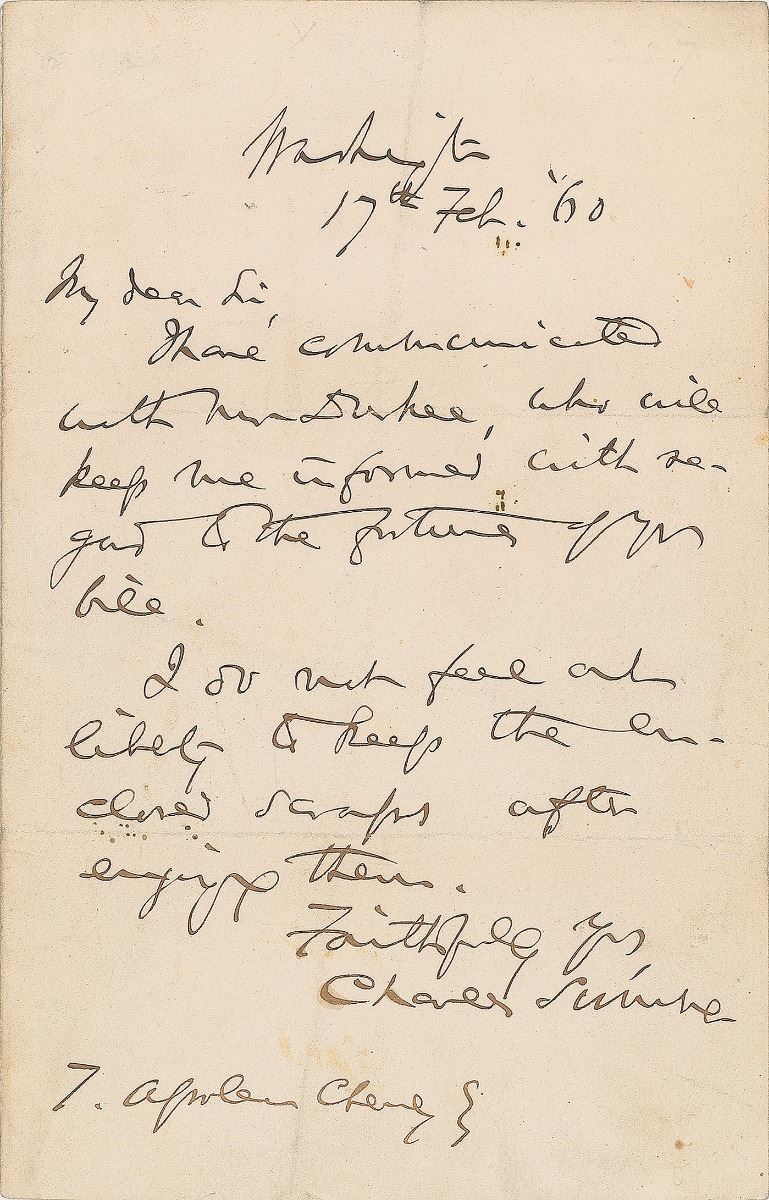 Washington
17th Feb. '60
My dear Sir,
I have communicated
with Mr Durkee, who will
keep me informed with re-
gard to the fortunes of yr
bill.
I do not feel at
liberty to keep the en-
closed scraps after
enjoying them.
Faithfully Yrs,
Charles Sumner
T. Apoleon Cheney